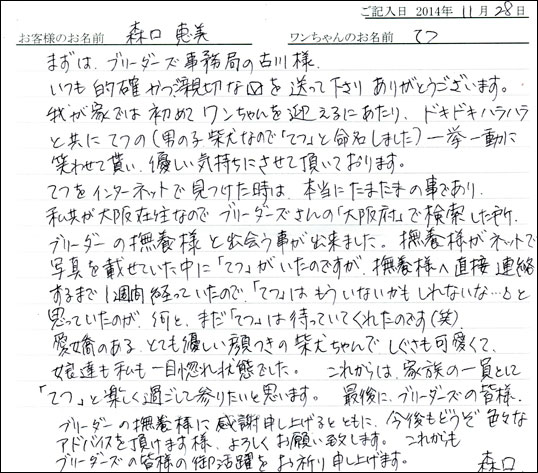 ご記入日 2014年 11月 28日
お客様のお名前 森口 恵美 ワンちゃんのお名前 てつ
まずは、ブリーダーズ事務局の古川様、
いつも的確かつ親切な✉を送って下さりありがとうございます。
我が家では初めてワンちゃんを迎えるにあたり、ドキドキハラハラ
と共にてつの(男の子柴犬なので「てつ」と命名しました)一挙一動に
笑わせて貰い、優しい気持ちにさせて頂いております。
てつをインターネットで見つけた時は、本当にたまたまの事であり、
私共が大阪在住なのでブリーダーズさんの「大阪府」で検索した所、
ブリーダーの撫養様と出会う事が出来ました。撫養様がネットで
写真を載せていた中に「てつ」がいたのですが、撫養様へ直接連絡
するまで1週間経っていたので、「てつ」はもういないかもしれないな…と
思っていたのが、何と、まだ「てつ」は待っていてくれたのです(笑)
愛嬌のある、とても優しい顔つきの柴犬ちゃんで、しぐさも可愛くて、
娘達も私も一目惚れ状態でした。これからは、家族の一員として
「てつ」と楽しく過ごして参りたいと思います。最後に、ブリーダーズの皆様、
ブリーダーの撫養様に感謝申し上げるとともに、今後もどうぞ色々な
アドバイスを頂けます様、よろしくお願い致します。これからも
ブリーダーズの皆様の御活躍をお祈り申し上げます。 森口